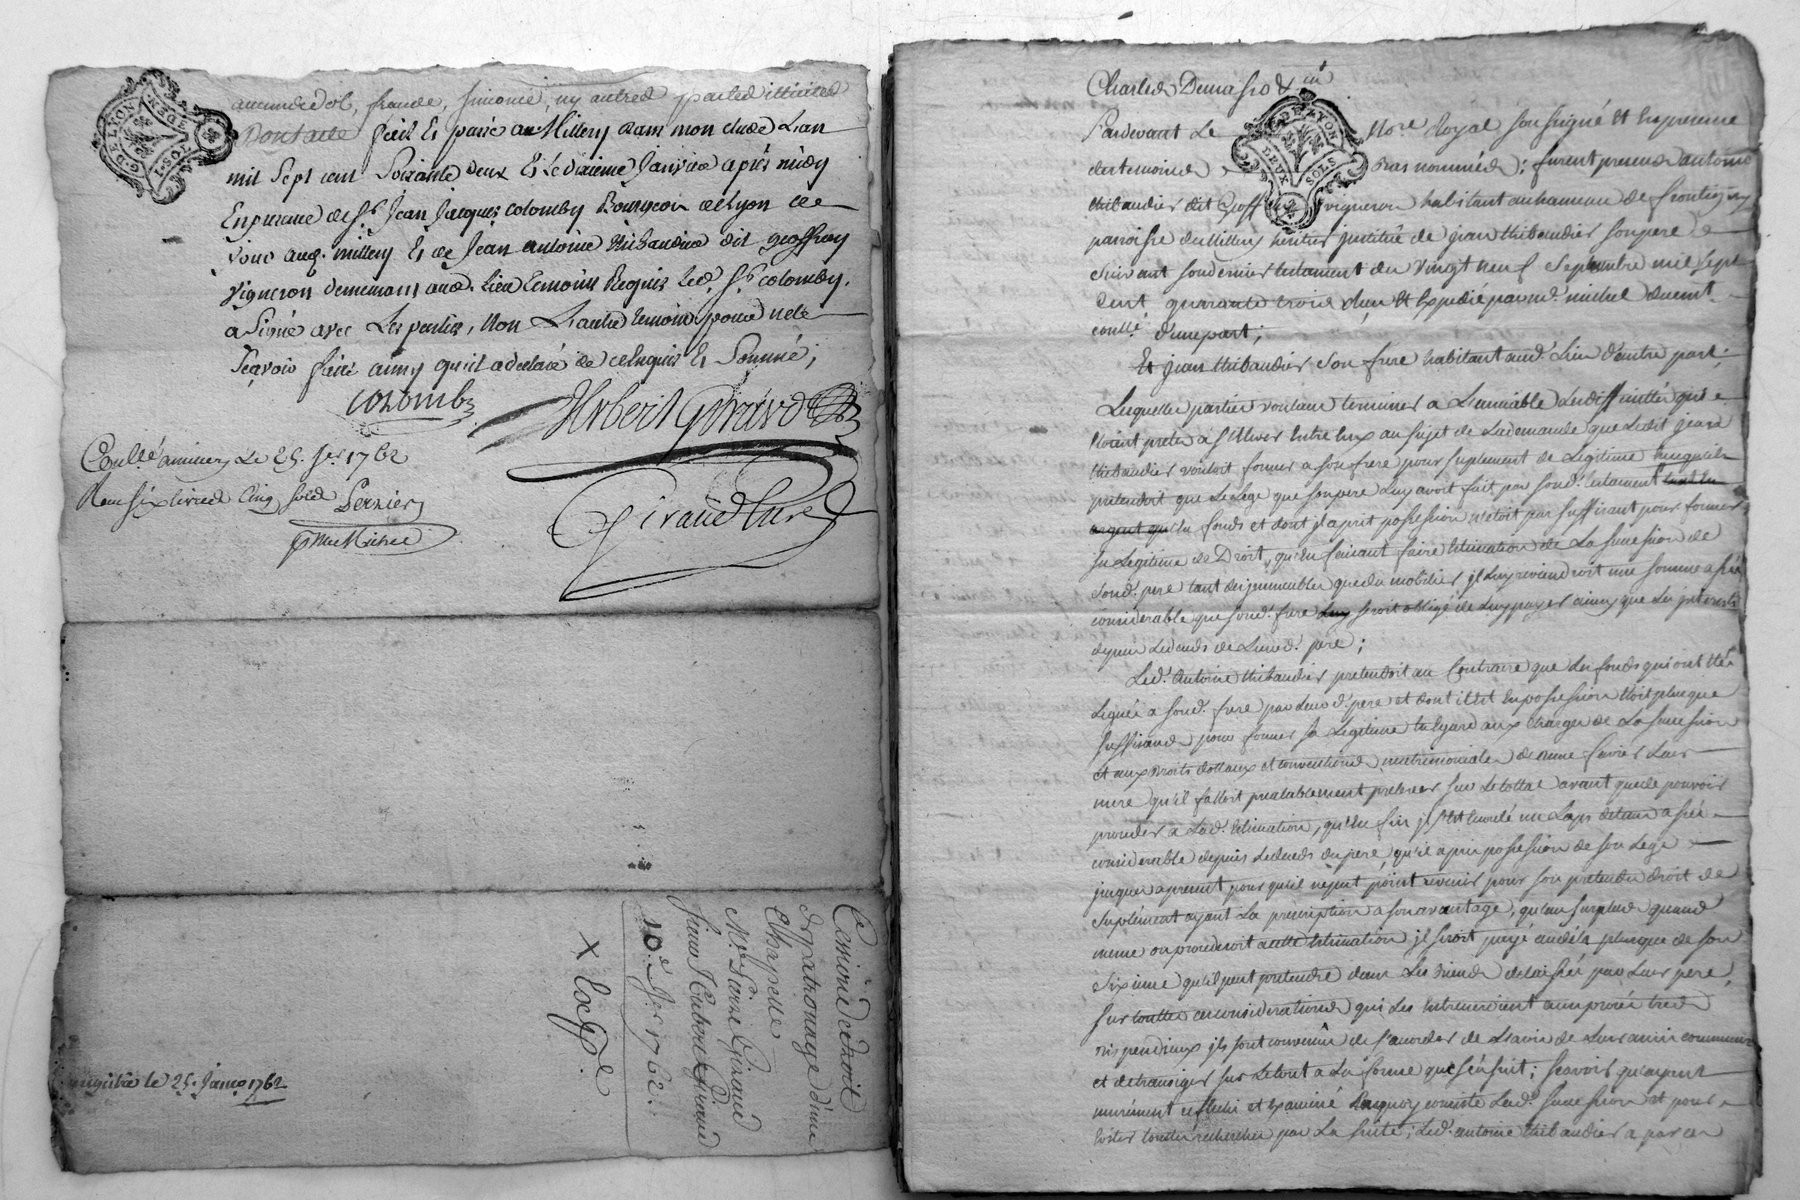 aucune dol, fraude, simonie, ny autres pactes illicites
Dont acte fait et passé au Millery dans mon étude L'an
mil sept cent Soixante deux Et le dixieme Janvier après midy
En presance de Sr. Jean Jacques Colomby Bourgeois de Lyon
aud. millery Et de Jean antoine thibaudier dit geoffray
vigneron demeurans aud. Lieu temoins Requis Led. Sr. Colomby
a Signé avec Les parties, Non L'autre temoin pour ne le
sçavoir faire ainsy qu'il a declaré de ce Enquis Et Sommé;
Colomby
Girard
Giraud Curé
Conllé a millery Le 25. Jer 1762
six livres Cinq sols Pernier
Michel
Cession de droit
de patronage d'une
Chapelle
Mre Pierre Giraud
Sieur Giraud
10e Jer 1762
x Expe
le 25. Janer 1762
G. DE LYON
DEUX SOLS
Charles Demasso &
Pardevant Le Nore. Royal soussigné Et En presence
des temoins bas nommés; furent presens antoine
thibaudier dit Geoffray vigneron habitant au hameau de
parroisse de Millery heritier institué de jean thibaudier son pere
suivant son dernier testament du vingt neuf Septembre mil sept
cent quarante trois Et Expedié par md. michel
d'une part;
Et jean thibaudier son frere habitant aud. Lieu d'autre part;
Lesquelles parties voulans terminer a L'amiable Les difficultés qui
étoient pretes a s'Elever Entre Eux au sujet de La demande que Ledit jean
thibaudier vouloit former a son frere pour suplement de Legitime
pretendoit que Le Legs que son pere Luy avoit fait par sond. testament
en fonds et dont il a prit possession n'étoit pas suffisant pour former
sa Legitime de Droit, qu'en faisant faire Estimation de La succession de
sond. pere tant des immeubles que du mobilier, il Luy reviendroit une somme assés
considerable que sond. frere seroit obligé de Luy payer ainsy que Les interets
depuis Le deces de Leurd. pere;
Led. Antoine thibaudier pretendoit au Contraire que Les fonds qui ont été
Legués a sond. frere par Leurd. pere et dont il Est En possession étoit plus que
suffisans pour former sa Legitime Eu Egard aux charges de La succession
et aux droits dottaux et conventions matrimoniales de Leur
mere qu'il falloit prealablement prelever sur Le total avant que de pouvoir
proceder a Lad. Estimation, qu'En fin il s'Est Ecoulé un Laps de tems assés
considerable depuis Le deces du pere, qu'il a pris possession de son Legs
jusques a present pour qu'il ne put point revenir pour son pretendu droit de
suplement ayant La prescription a son avantage, qu'au surplus quand
meme on procederoit a cette Estimation il seroit payé au dela plus que de son
sixieme qu'il peut pretendre dans Les biens delaissés par Leur pere,
sur toutes ces considerations qui Les Entraineroient a un procés tres
dispendieux ils sont convenus de s'accorder de L'avis de Leurs amis communs
et de transiger sur Le tout a La forme que s'ensuit; sçavoir qu'ayent
murement reflechi et Examiné En quoy consiste Lad. succession et pour
Eviter toutes recherches par La suite, Led. antoine thibaudier a par ces